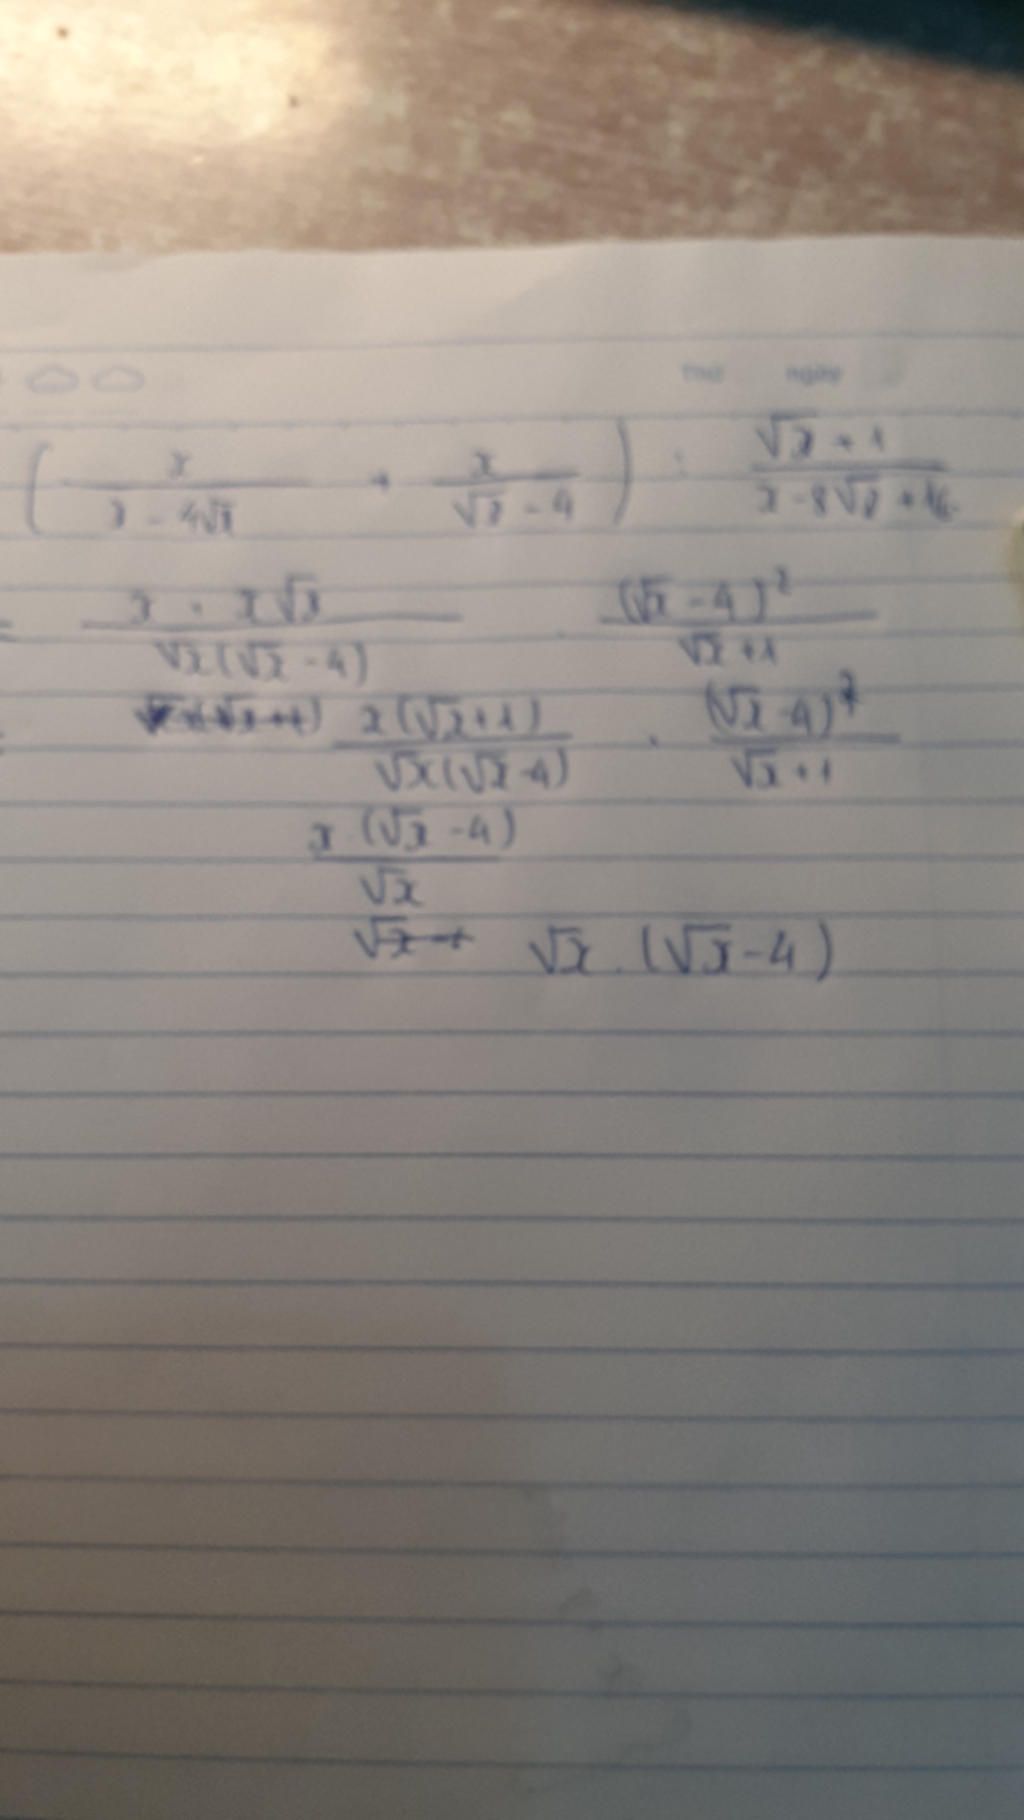 Thứ ngày
( x / (x - 4√x) + x / (√x - 4) ) : (√x + 1) / (x - 8√x + 16)
= (x + x√x) / (√x(√x - 4)) . (√x - 4)² / (√x + 1)
= x(√x + 1) / (√x(√x - 4)) . (√x - 4)² / (√x + 1)
x . (√x - 4) / √x
√x . (√x - 4)